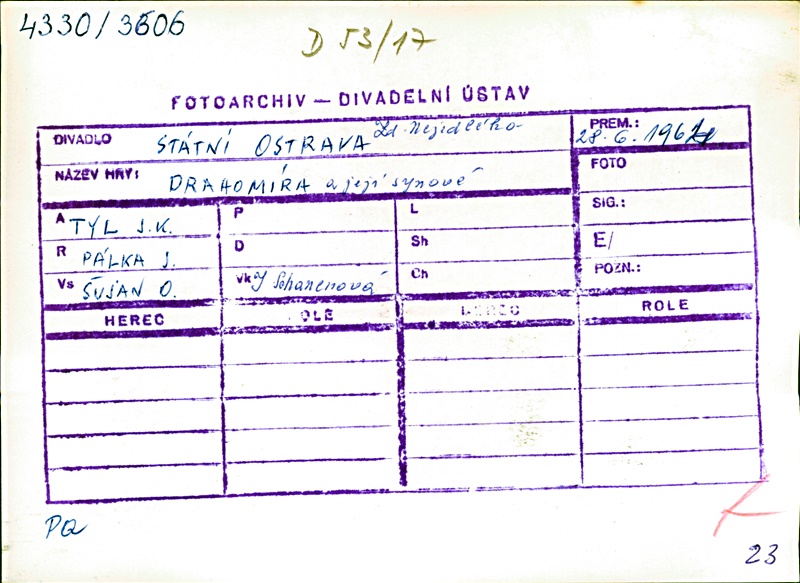 4330/3606
D 53/17
FOTOARCHIV — DIVADELNÍ ÚSTAV
DIVADLO STÁTNÍ OSTRAVA Zd. Nejedlého
PREM.: 28. 6. 1961
NÁZEV HRY: DRAHOMÍRA a její synové
FOTO
SIG.:
E/
POZN.:
A TYL J.K.
P
L
R PÁLKA J.
D
Sh
Vs ŠUJAN O.
Vk J Schanenová
Ch
HEREC ROLE HEREC ROLE
PQ
23